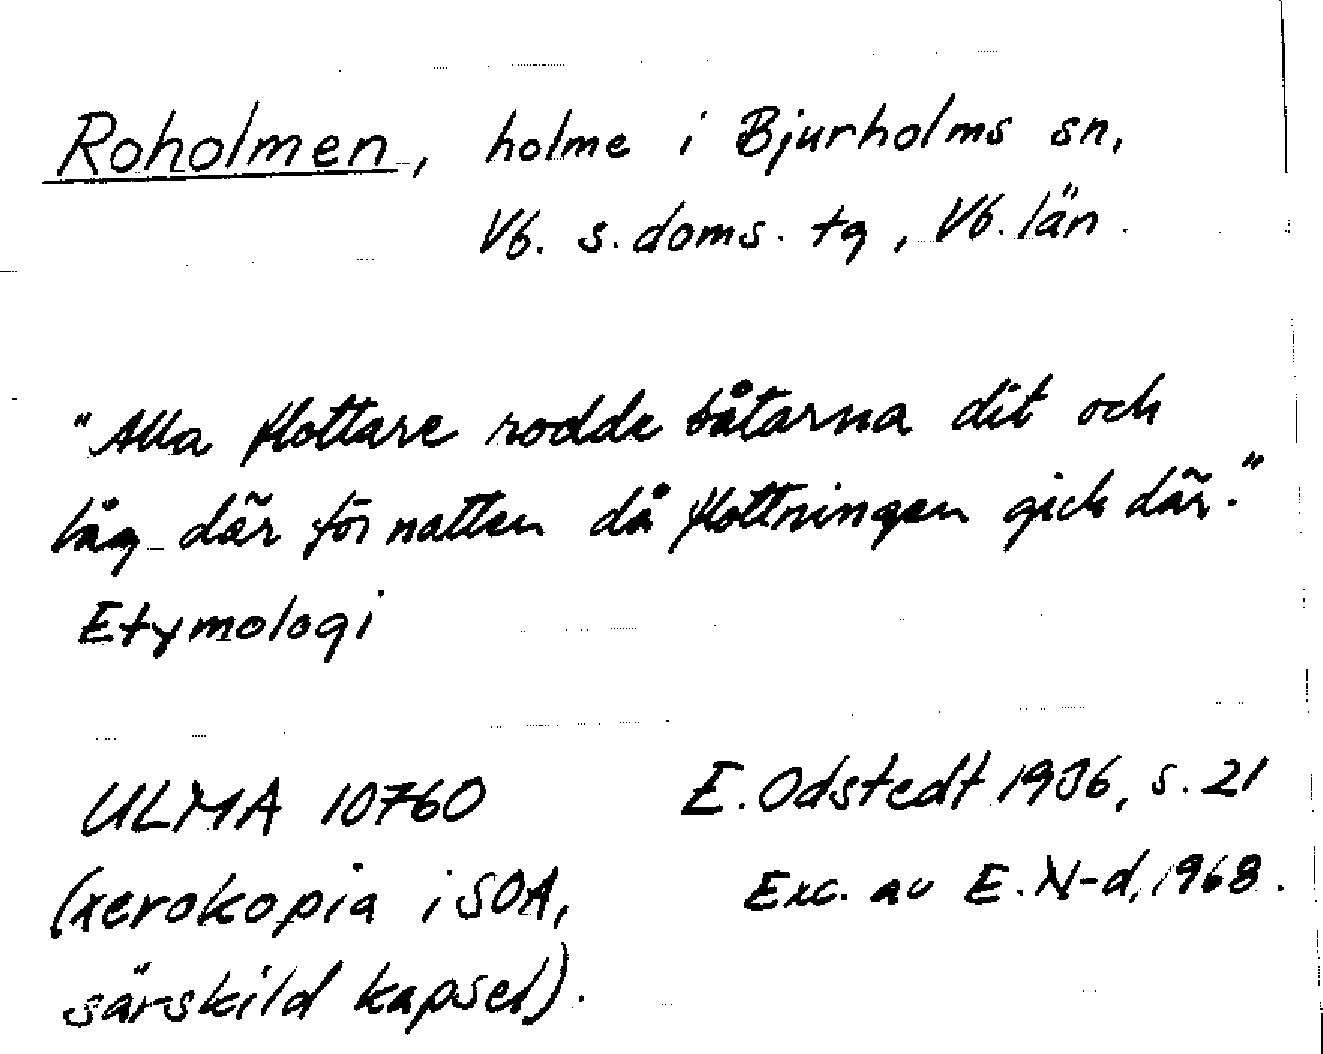 Roholmen, holme i Bjurholms sn,
Vb. s. doms. tg, Vb. län.
"Alla flottare rodde båtarna dit och
låg där för natten då flottningen gick där."
Etymologi
ULMA 10760
(xerokopia i SOA,
särskild kapsel).
E. Odstedt 1936, s. 21
Exc. av E. N-d, 1968.